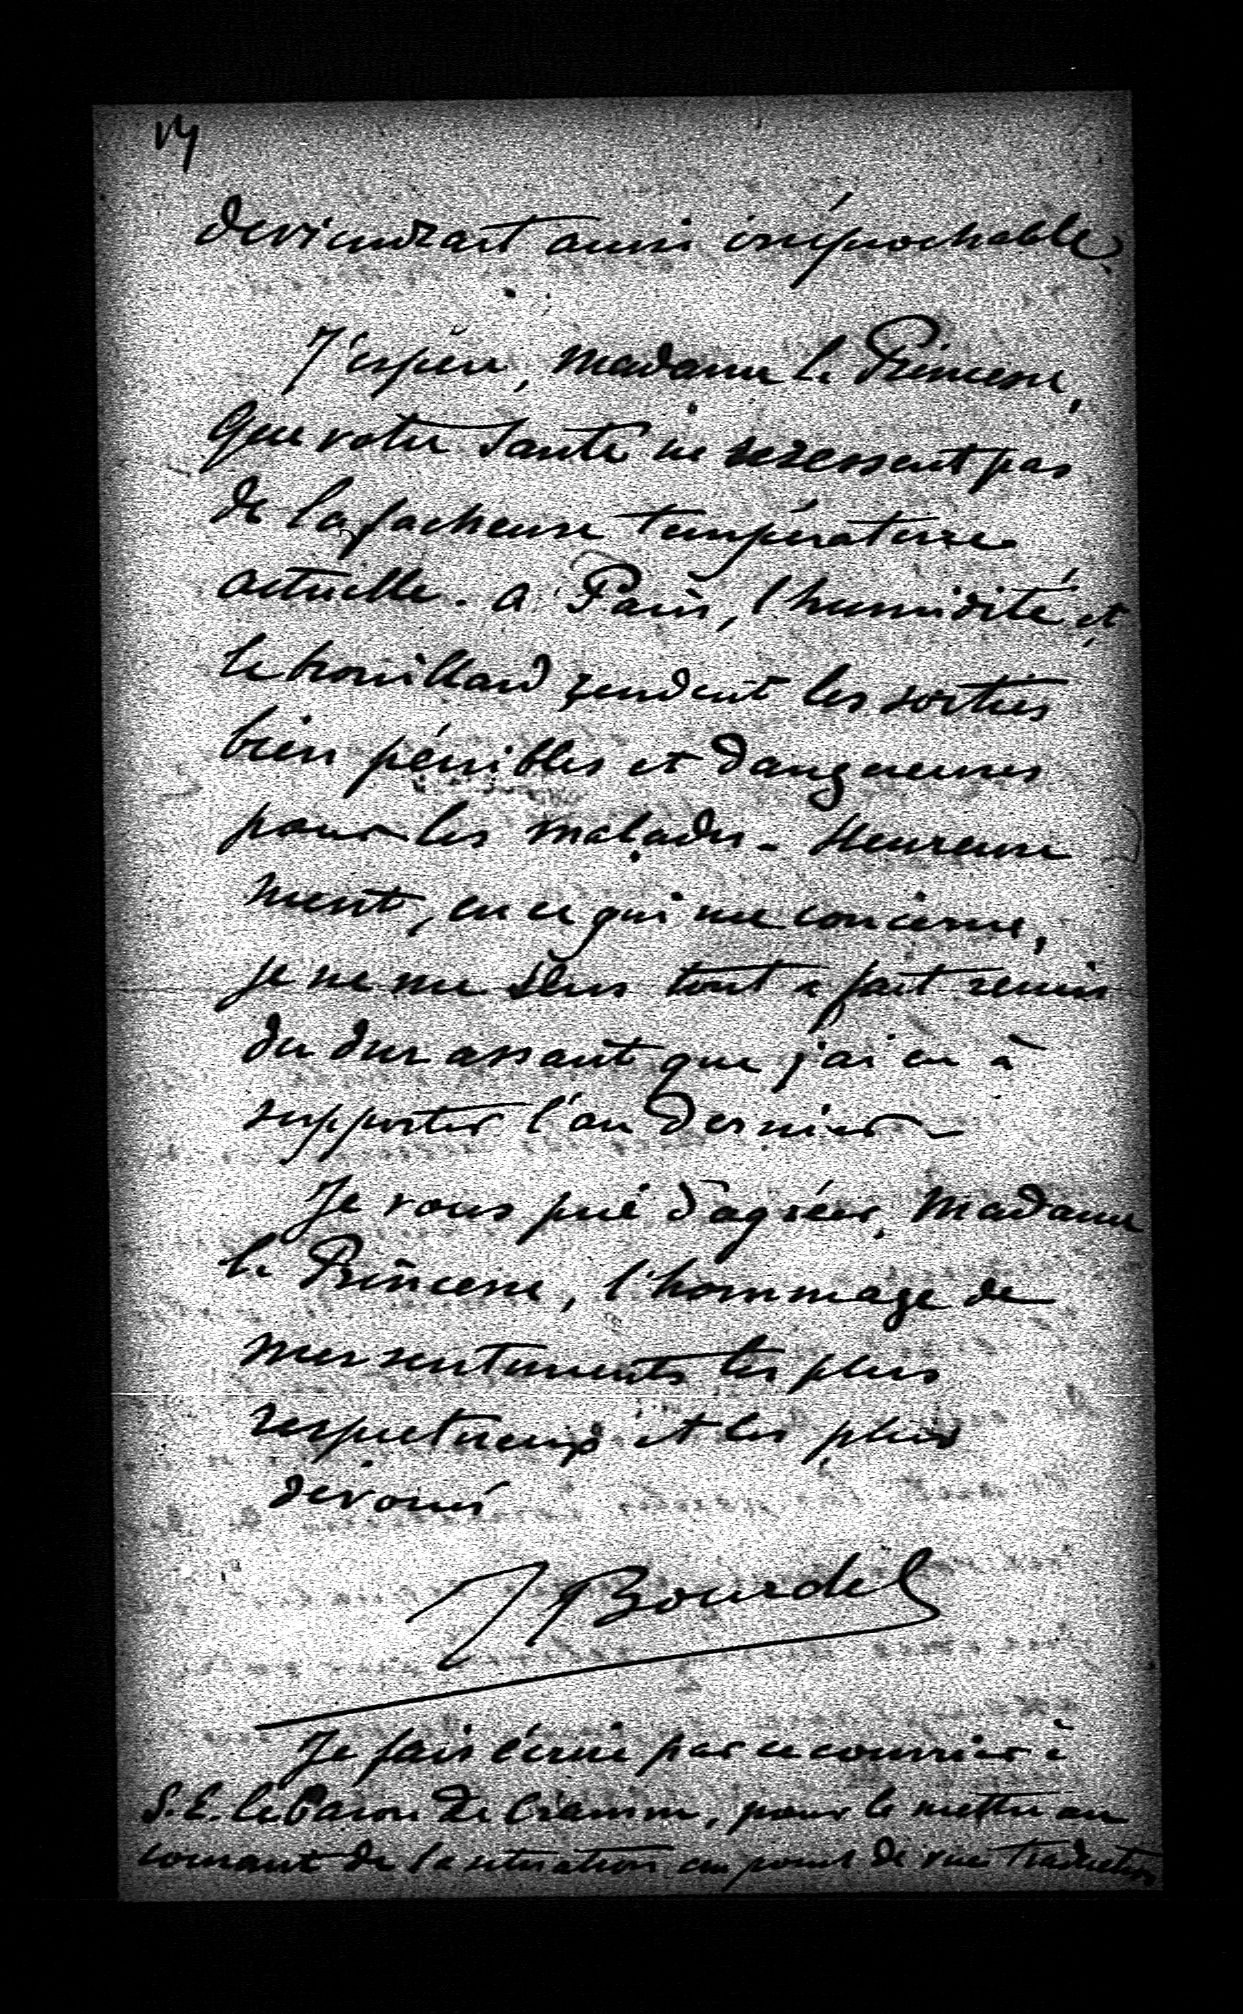 deviendrait ainsi irréprochable.
J'espère, Madame la Princesse,
que votre santé ne se ressent pas
de la facheuse température
actuelle. A Paris, l'humidité et
le brouillard rendent les sorties
bien pénibles et dangereuses
pour les malades - Heureuse
ment, en ce qui me concerne,
je ne me sens tout a fait remis
du dur assaut que j'ai eu à
supporter l'an dernier -
Je vous prie d'agréer, Madame
la Princesse, l'hommage de
mes sentiments les plus
respectueux et les plus
dévoués
J Bourdel
Je fais écrire par ce courrier à
S. E. le Baron de Cramm, pour le mettre au
courant de la situation au point de vue traduction